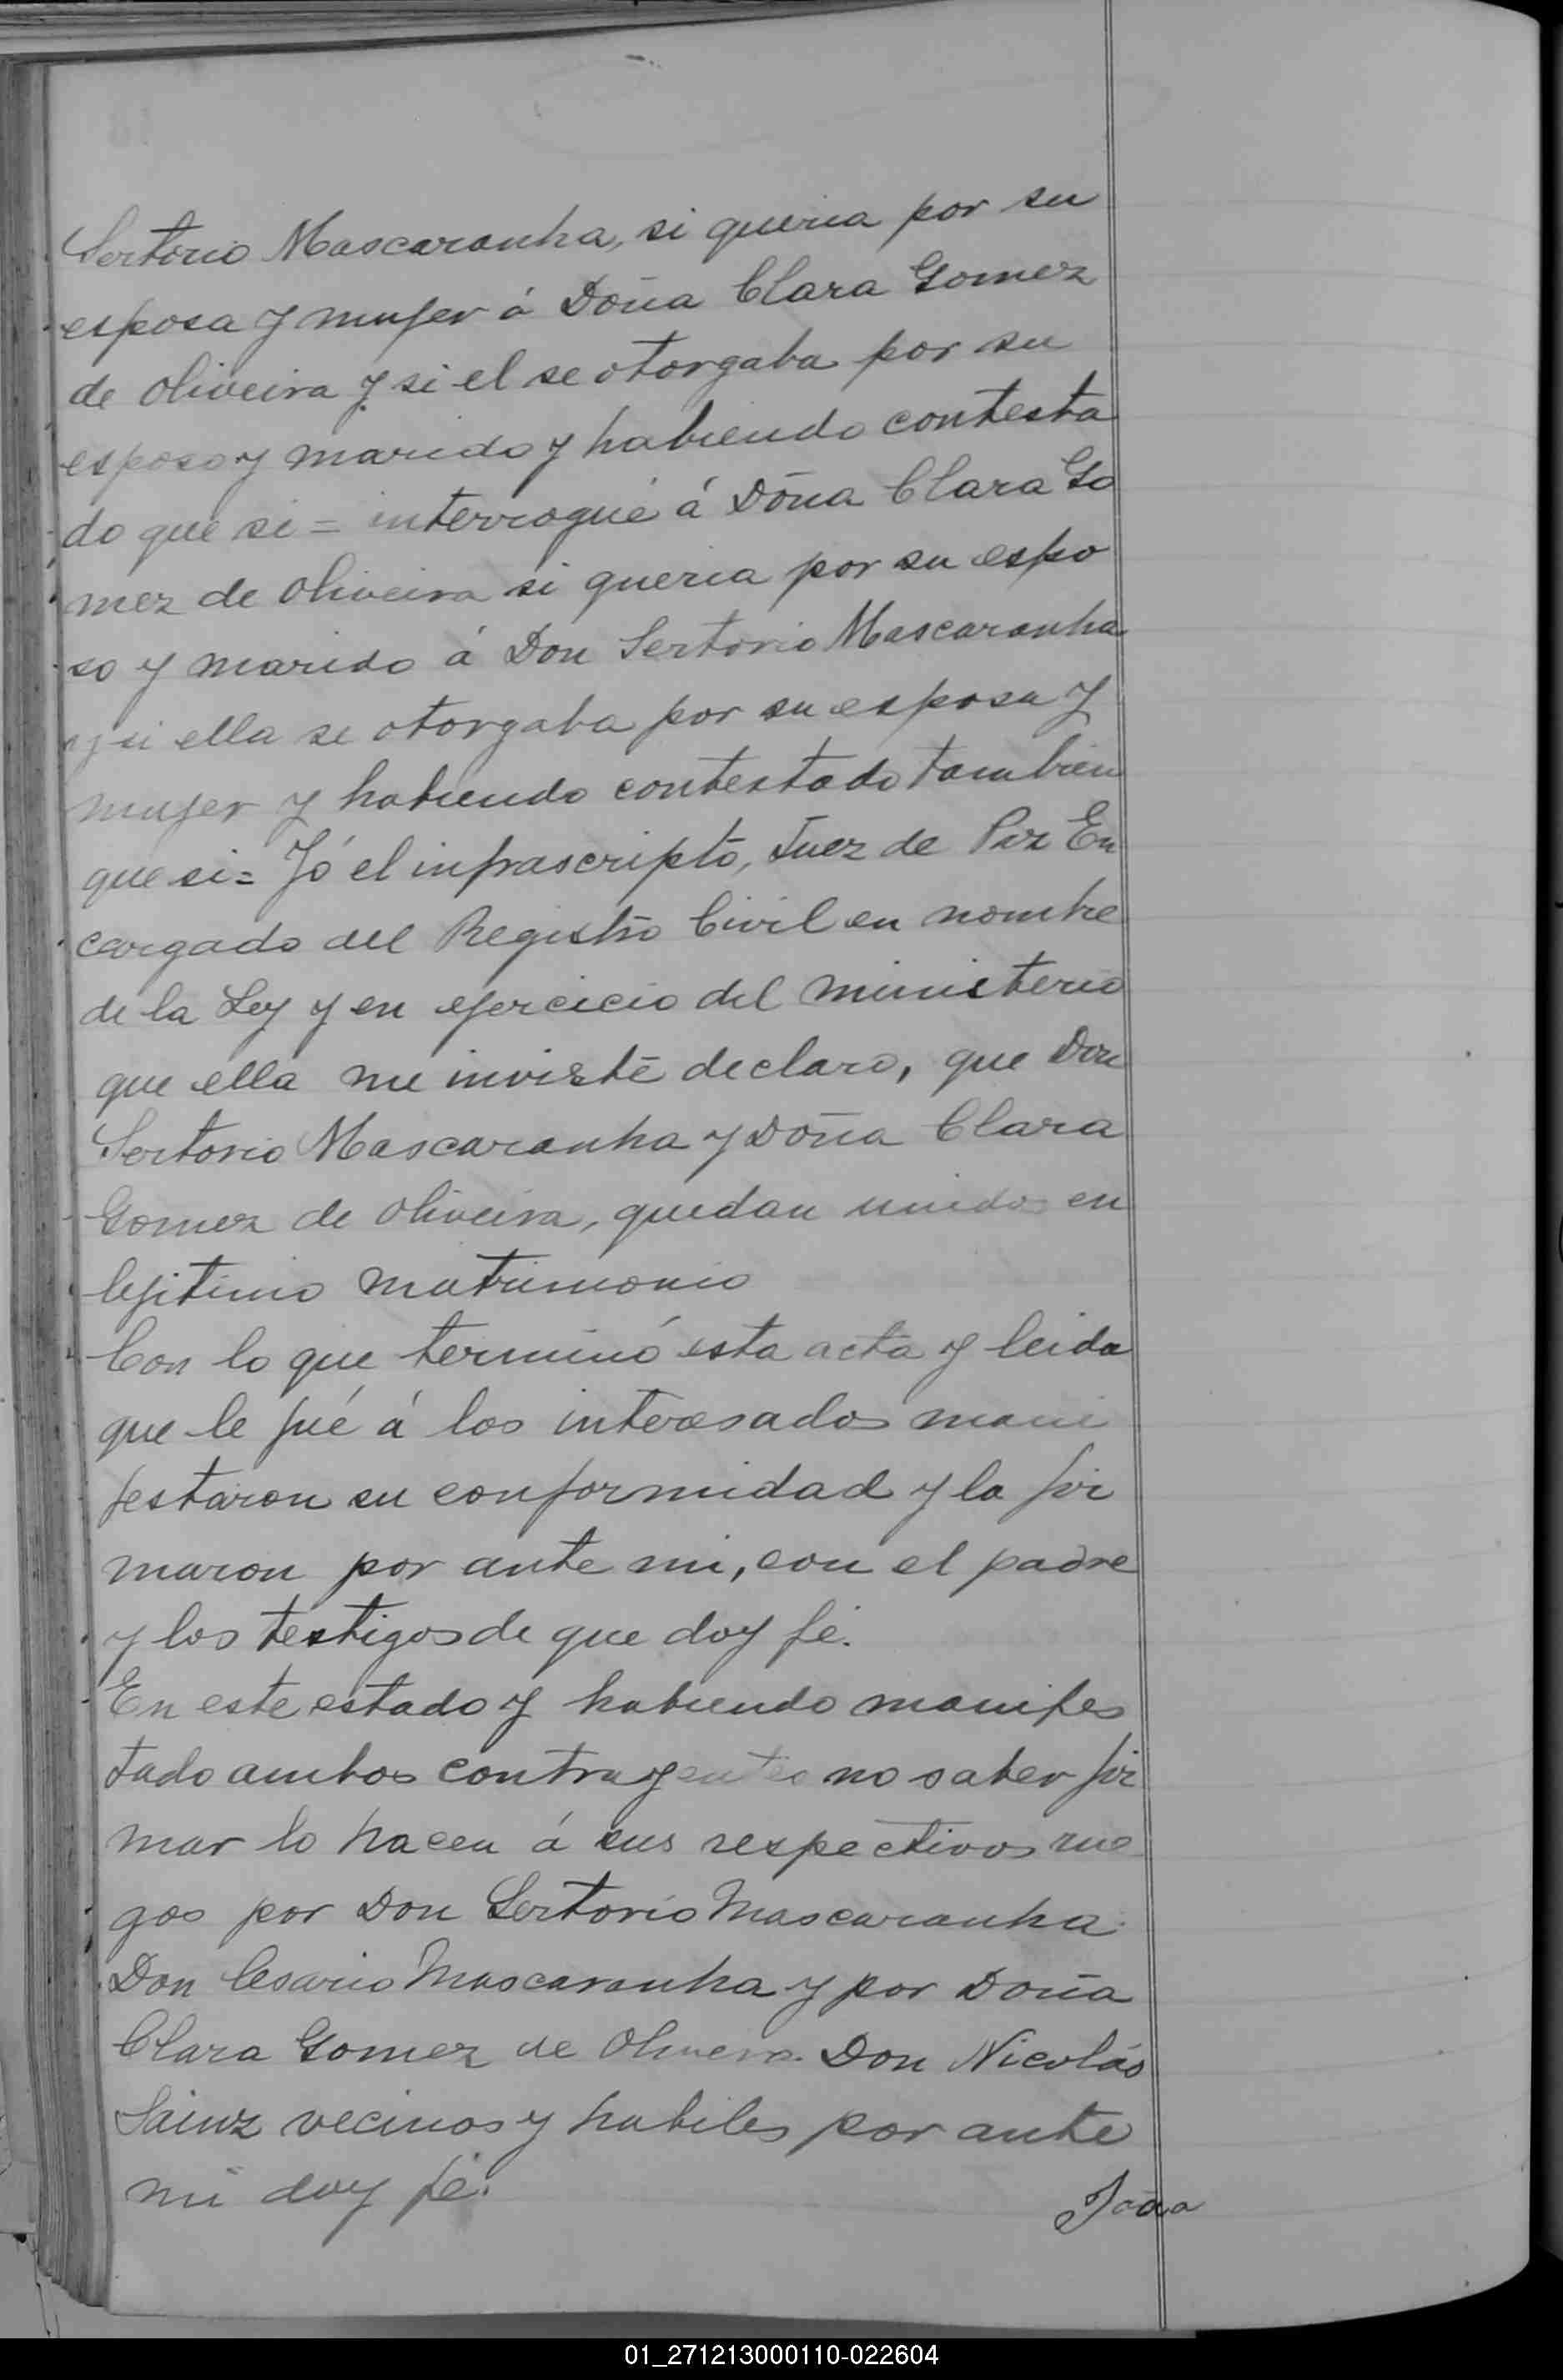 Sertorio Mascaranha, si queria por su
esposa y mujer á Doña Clara Gomez
de Oliveira y si el se otorgaba por su
esposo y marido y habiendo contesta
do que si = interrogué á Doña Clara Go
mez de Oliveira si queria por su espo
so y marido á Don Sertorio Mascaranha
y si ella se otorgaba por su esposa y
mujer y habiendo contestado tambien
que si = Yó el infrascripto, Juez de Paz En
cargado del Registro Civil en nombre
de la Ley y en ejercicio del ministerio
que ella me inviste declaro, que Don
Sertorio Mascaranha y Doña Clara
Gomez de Oliveira, quedan unidos en
lejitimo matrimonio
Con lo que terminó esta acta y leida
que le fué á los interesados mani
festaron su conformidad y la fir
maron por ante mi, con el padre
y los testigos de que doy fé.
En este estado y habiendo manifes
tado ambos contrayentes no saber fir
mar lo hacen á sus respectivos rue
gos por Don Sertorio Mascaranha
Don Cesario Mascaranha y por Doña
Clara Gomez de Oliveira Don Nicolás
Sainz vecinos y habiles por ante
mi doy fé.
João
01_271213000110-022604